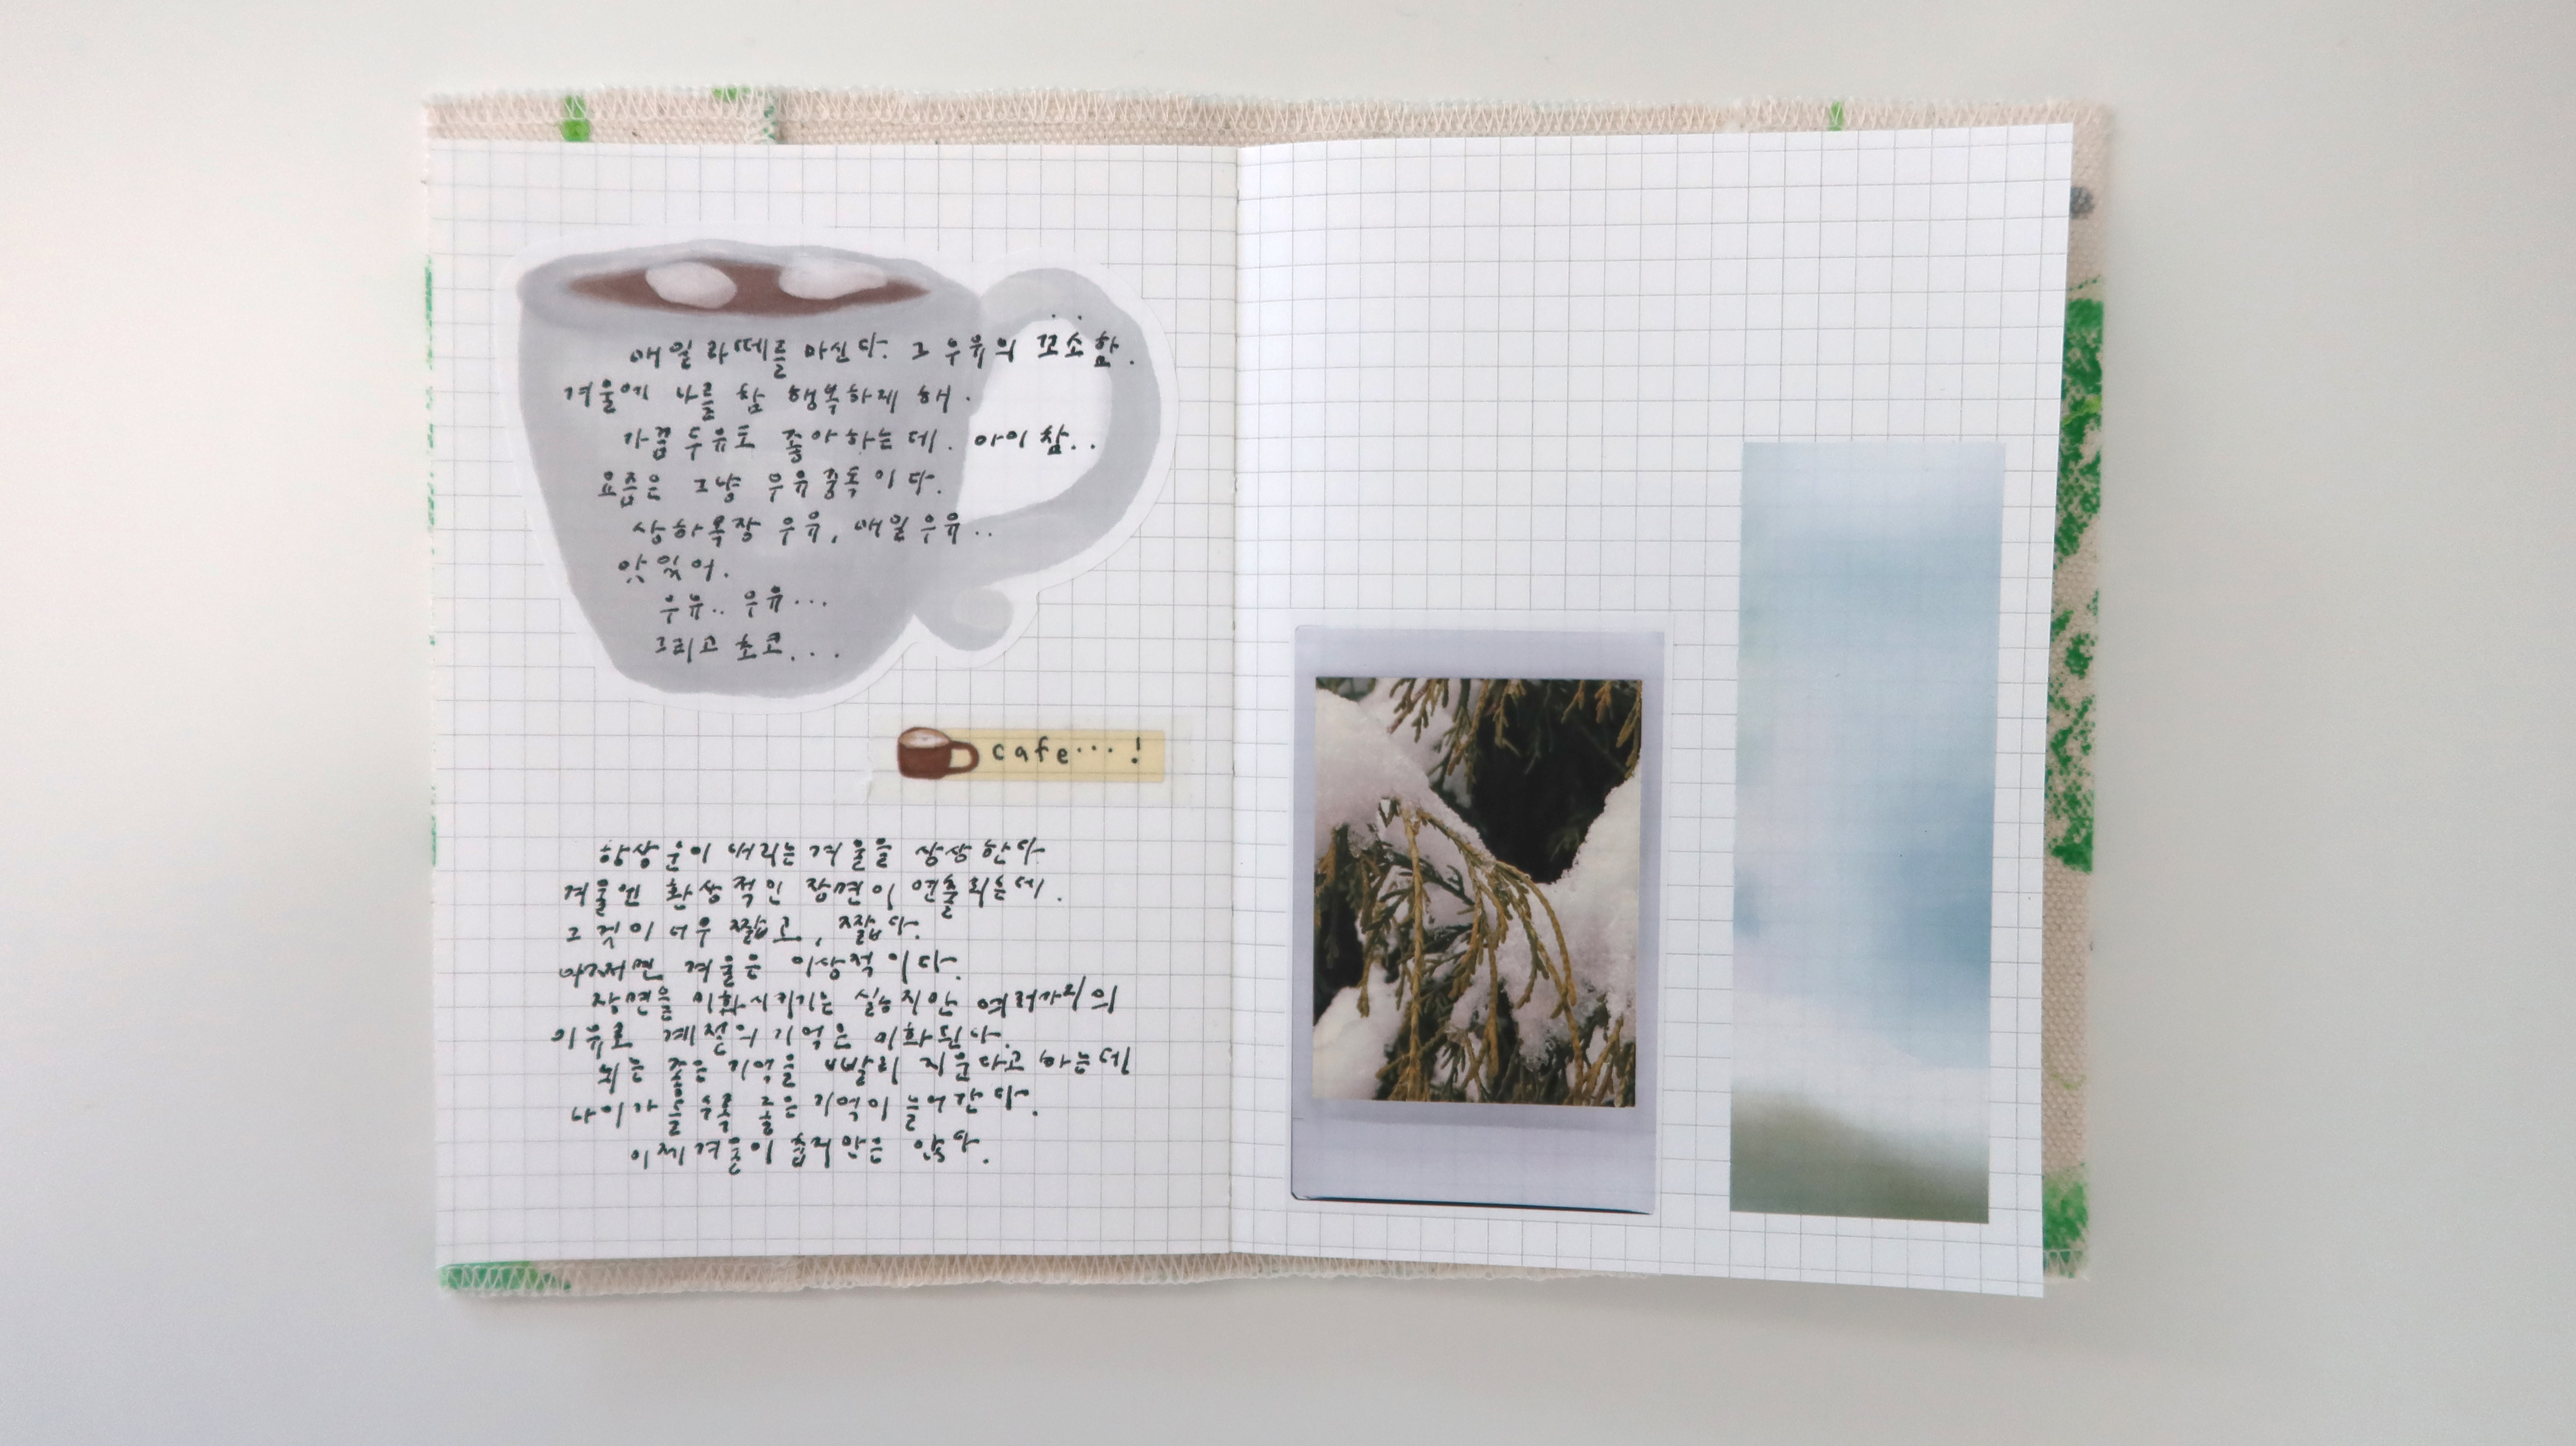 매일 라떼를 마신다. 그 우유의 꼬소함..
겨울에 나를 참 행복하게 해.
가끔 두유도 좋아하는데. 아이참..
요즘은 그냥 우유중독이다.
상하목장 우유, 매일우유..
맛있어.
우유.. 우유...
그리고 초코...
cafe...!
항상 눈이 내리는 겨울을 상상한다
겨울엔 환상적인 장면이 연출되는데.
그것이 너무 짧고, 짧다.
어쩌면 겨울은 이상적이다.
장면을 미화시키기는 싫지만 여러가지의
이유로 계절의 기억은 미화된다.
뇌는 좋은 기억을 빨리 지운다고 하는데
나이가 들수록 좋은 기억이 늘어간다.
이제 겨울이 춥지만은 않다.